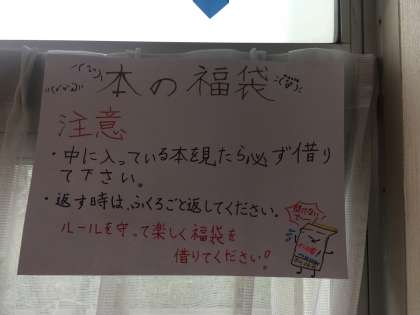 本の福袋
注意
・中に入っている本を見たら必ず借り
て下さい。
・返す時は、ふくろごと返してください。
ルールを守って楽しく福袋を
借りてください!